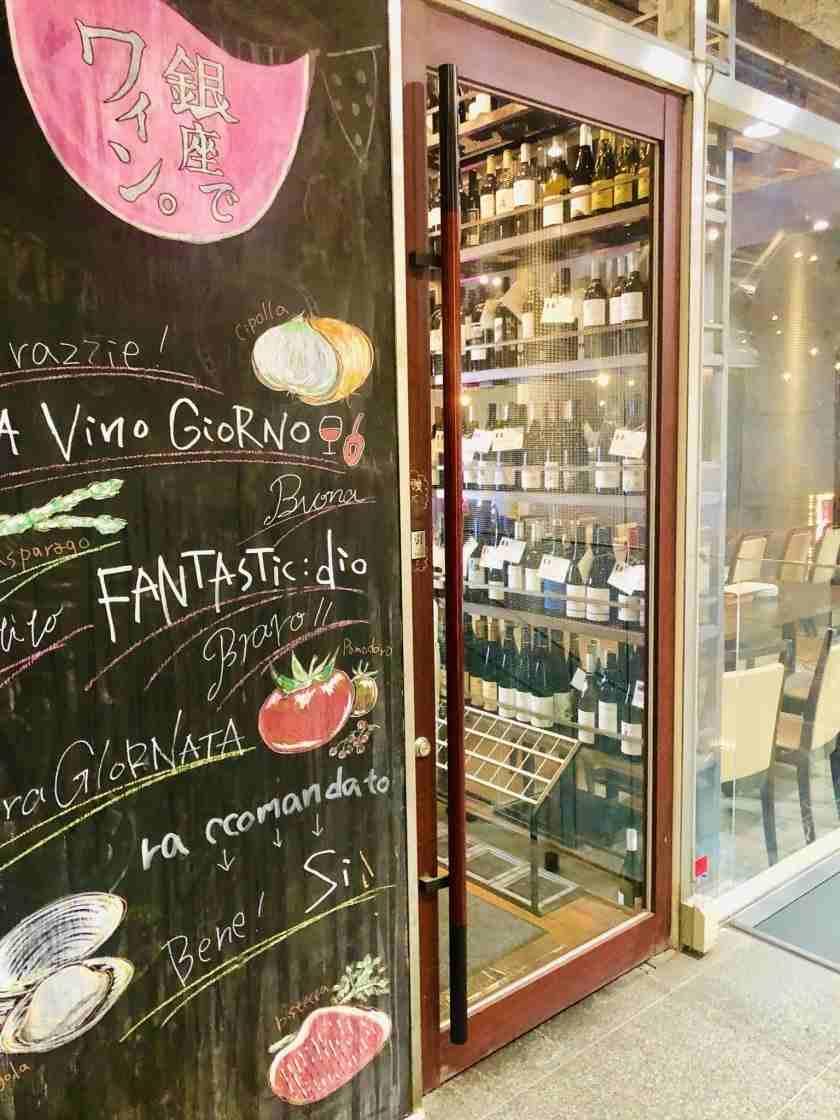 銀座で
ワイン。
razzie!
Cipolla
A Vino GioRNO
Buona
Asparago
FANTASTIC:dio
Bravo!!
Pomodoro
ra GIORNATA
raccomandato
Si!
Bene!